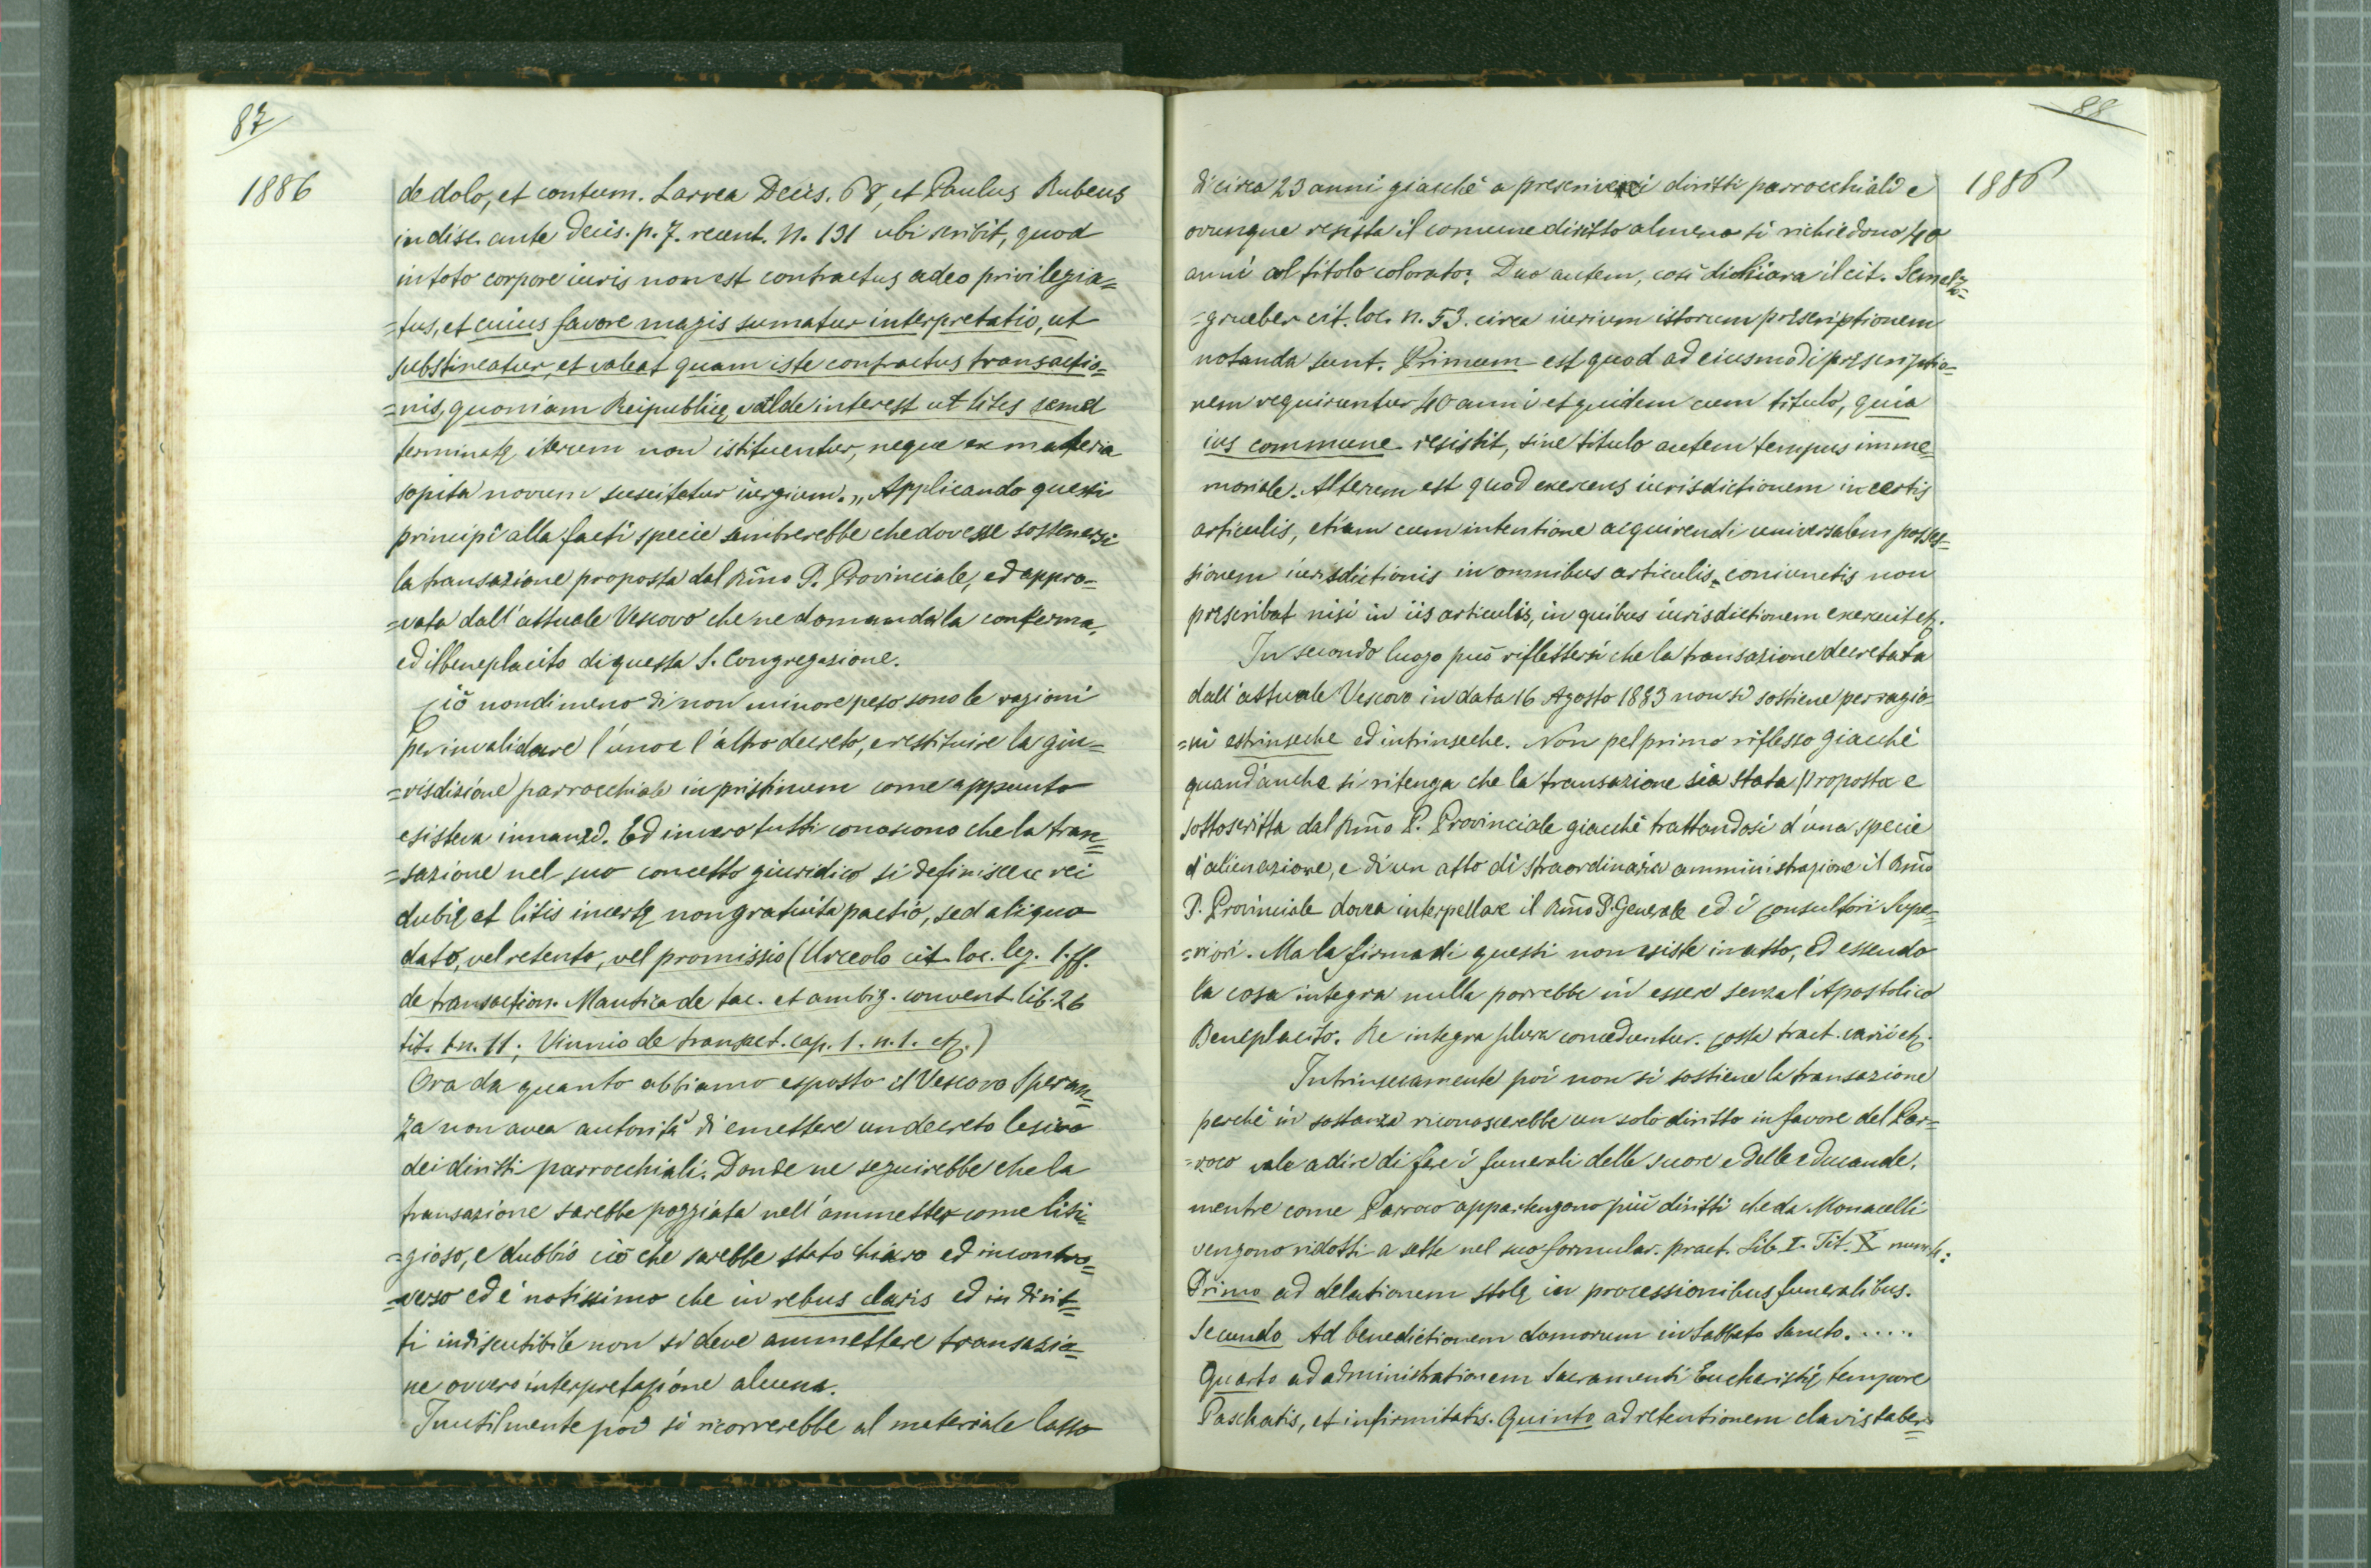 87
1886
de dolo, et contum. Larrea Decis. 68, et Paulus Rubeus
in disc. ante Decis. p. 7. recent. N. 131 ubi scribit, quod
in toto corpore iuris non est contractus adeo privilegia=
=tus, et cuius favore magis sumatur interpretatio, ut
substineatur, et valeat quam iste contractus transactio=
=nis, quoniam Reipublicę valde interest ut lites semel
terminatę iterum non istituentur, neque ex materia
sopita novum suscitetur iurgium. „ Applicando questi
principî alla facti specie sembrerebbe che dovesse sostenersi
la transazione proposta dal Rmo P. Provinciale, ed appro=
=vata dall'attuale Vescovo che ne domanda la conferma,
ed il beneplacito di questa S. Congregazione.
Ciò nondimeno di non minore peso sono le ragioni
per invalidare l'uno e l'altro decreto, e restituire la giu=
=risdizione parrocchiale in pristinum come appunto
esisteva innanzi. Ed invero tutti conoscono che la tran=
=sazione nel suo concetto giuridico si definisce rei
dubię et litis incertę non gratuita pactio, sed aliquo
dato, vel retento, vel promissio (Urceolo cit. loc. leg. 1. ff.
de transaction. Mantica de tac. et ambig. convent. lib. 26
tit. 1 n. 11; Vinnio de transact. cap. 1. n. 1. etc.)
Ora da quanto abbiamo esposto il Vescovo Speran=
za non avea autorità di emettere un decreto lesivo
dei diritti parrocchiali. Donde ne seguirebbe che la
transazione sarebbe poggiata nell'ammetter come liti=
=gioso, e dubbio ciò che sarebbe stato chiaro ed incontro=
=verso ed è notissimo che in rebus claris ed in dirit=
ti indiscutibile non si deve ammettere transazio=
ne ovvero interpretazione alcuna.
Inutilmente poi si ricorrerebbe al materiale lasso
88
1886
di circa 23 anni giacchè a prescrivere i diritti parrocchiali e
ovunque resista il comune diritto almeno si richiedono 40
anni col titolo colorato: Duo autem, così dichiara il cit. Scmelz=
=grueber cit. loc. n. 53. circa iurium istorum pręscriptionem
notanda sunt. Primum est quod ad eiusmodi pręscriptio=
nem requirantur 40 anni et quidem cum titulo, quia
ius commune resistit, sine titulo autem tempus imme
moriale. Alterum est quod exercens iurisdictionem in certis
articulis, etiam cum intentione acquirendi universalem posses=
sionem iurisdictionis in omnibus articulis coniunctis non
pręscribat nisi in iis articulis, in quibus iurisdictionem exercuit etc.
In secondo luogo può riflettersi che la transazione decretata
dall'attuale Vescovo in data 16 Agosto 1883 non si sostiene per ragio
=ni estrinseche ed intrinseche. Non pel primo riflesso giacchè
quand'anche si ritenga che la transazione sia stata proposta e
sottoscritta dal Rmo P. Provinciale giacchè trattandosi d'una specie
d'alienazione, e di un atto di straordinaria amministrazione il Rmo
P. Provinciale dovea interpellare il Rmo P. Generale ed i consultori Supe=
=riori. Ma la firma di questi non esiste in atto, ed essendo
la cosa integra nulla porrebbe in essere senza l'Apostolico
Beneplacito. Re integra plura conceduntur. Costa tract. varii etc.
Intrinsecamente poi non si sostiene la transazione
perchè in sostanza riconoscerebbe un solo diritto in favore del Par=
=roco vale a dire di fare i funerali delle suore e delle educande,
mentre come Parroco appartengono più diritti che da Monacelli
vengono ridotti a sette nel suo formular. pract. Lib. I. Tit. X num. 4:
Primo ad delationem stolę in processionibus funeralibus.
Secundo Ad benedictionem domorum in Sabbato Sancto. . . . . .
Quarto ad administrationem Sacramenti Eucharistię tempore
Paschatis, et infirmitatis. Quinto ad retentionem clavis taber=